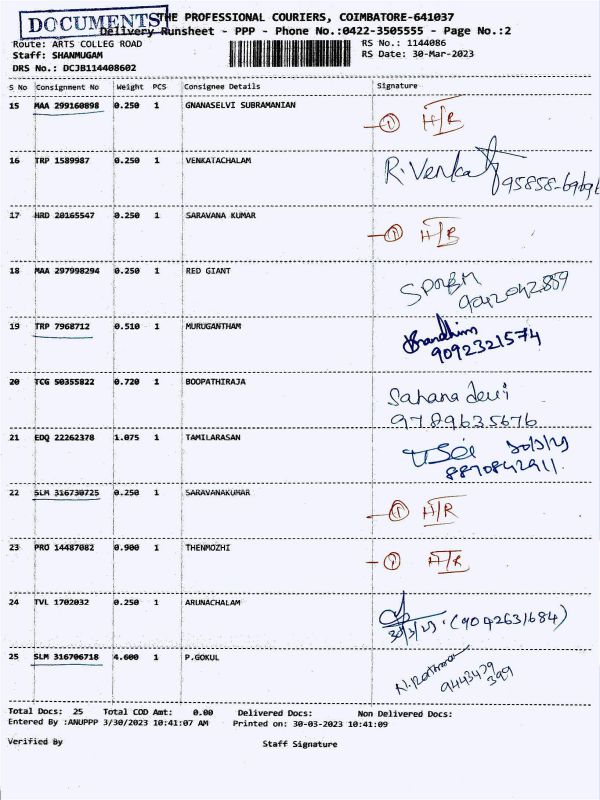 DOCUMENTS
THE PROFESSIONAL COURIERS, COIMBATORE-641037
Delivery Runsheet - PPP - Phone No.:0422-3505555 - Page No.:2
Route: ARTS COLLEG ROAD RS No.: 1144086
Staff: SHANMUGAM RS Date: 30-Mar-2023
DRS No.: DCJB114408602
S No Consignment No Weight PCS Consignee Details Signature
15 MAA 299160898 0.250 1 GNANASELVI SUBRAMANIAN
1 H/R
16 TRP 1589987 0.250 1 VENKATACHALAM
R. Venkat
17 HRD 20165547 0.250 1 SARAVANA KUMAR
1 H/R
18 MAA 297998294 0.250 1 RED GIANT
9042042859
19 TRP 7968712 0.510 1 MURUGANTHAM
9092321574
20 TCG 50355822 0.720 1 BOOPATHIRAJA
Sahana devi
9789635676
21 EDQ 22262378 1.075 1 TAMILARASAN
30/3/23
8870842911.
22 SLM 316730725 0.250 1 SARAVANAKUMAR
1 H/R
23 PRO 14487082 0.900 1 THENMOZHI
1 H/R
24 TVL 1702032 0.250 1 ARUNACHALAM
30/3/23. (9042631684)
25 SLM 316706718 4.600 1 P.GOKUL
9443479
399
Total Docs: 25 Total COD Amt: 0.00 Delivered Docs: Non Delivered Docs:
Entered By :ANUPPP 3/30/2023 10:41:07 AM Printed on: 30-03-2023 10:41:09
Verified By Staff Signature